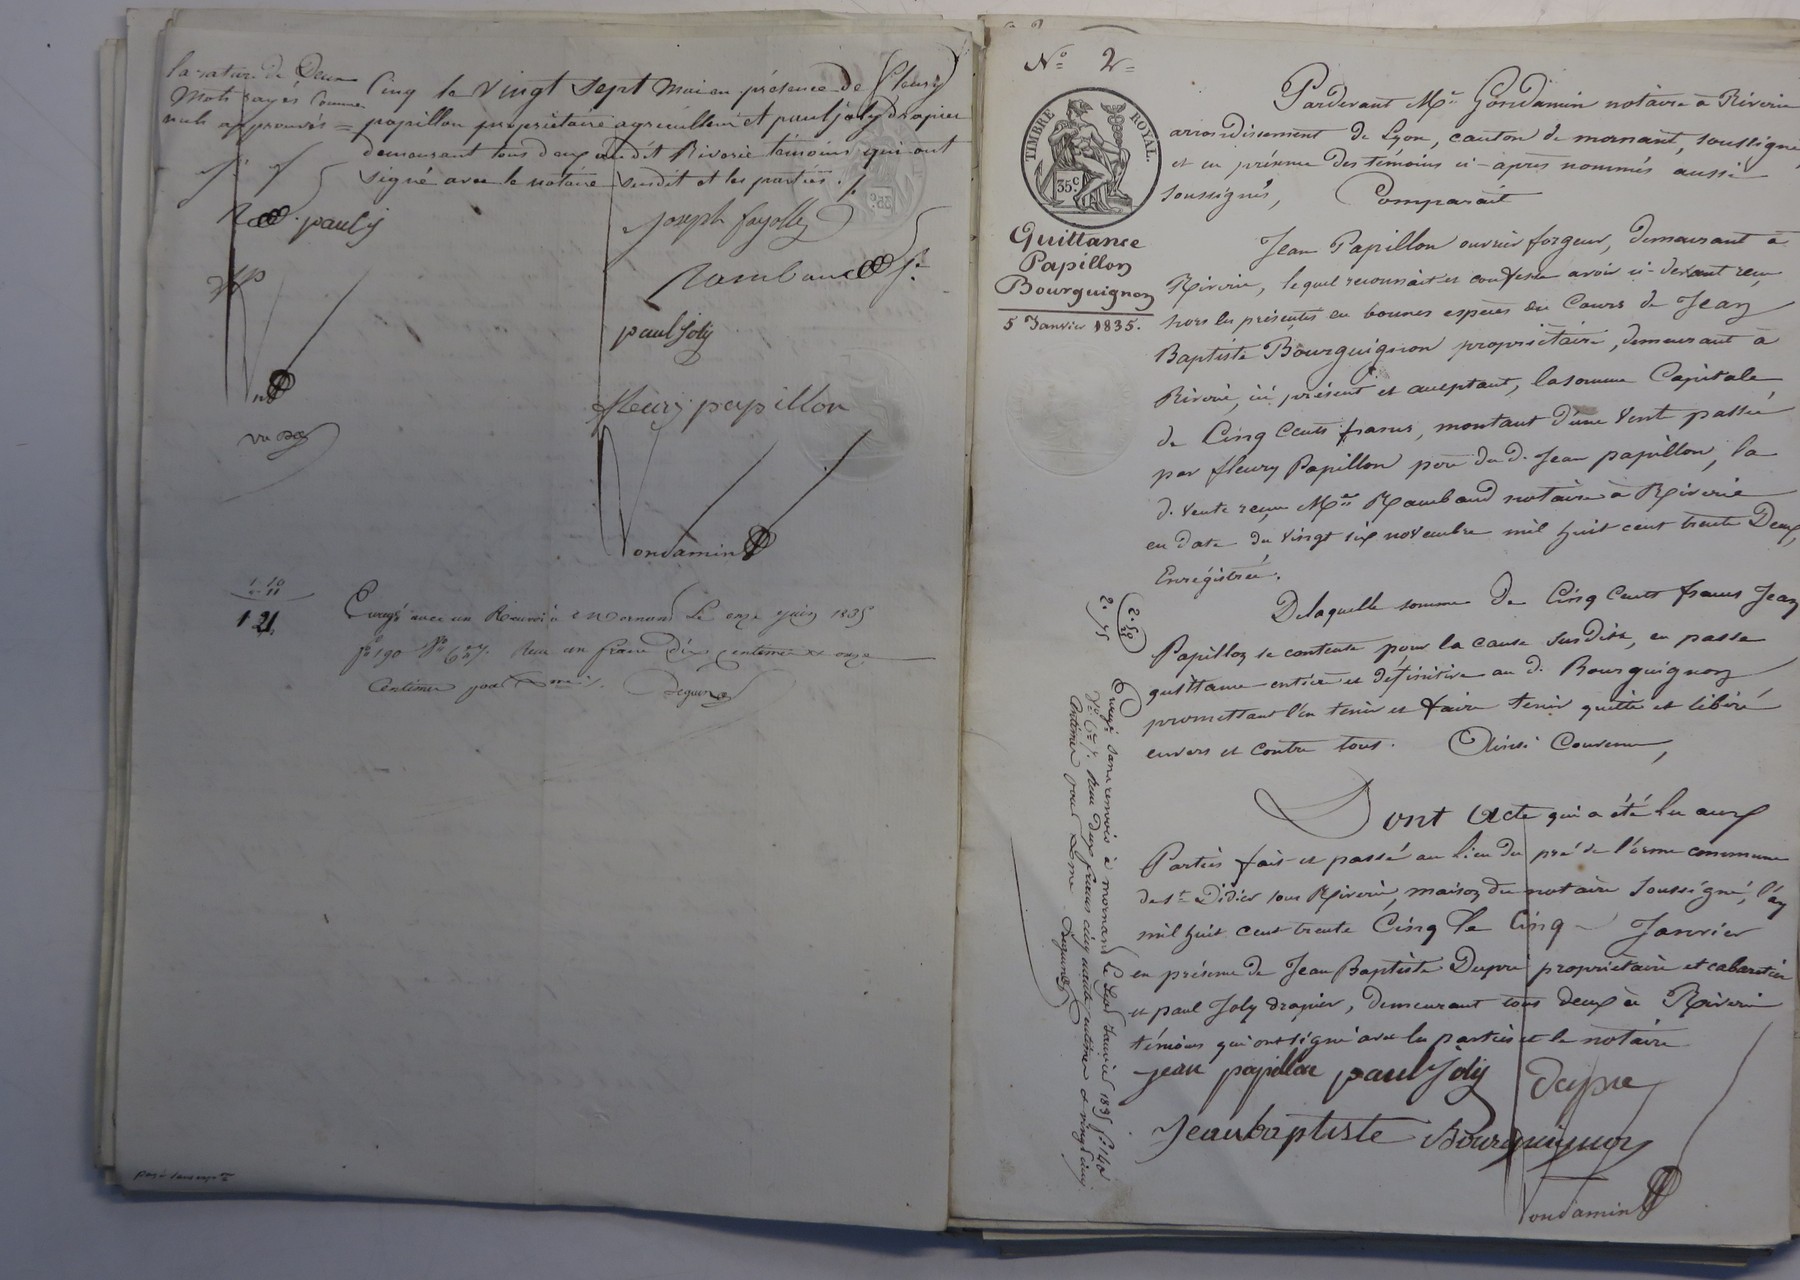 la rature de Deux
Mots rayés Comme
nuls approuvés =
Cinq le vingt sept Mai en présence de fleury
papillon propriétaire agriculteur et paul joly drapier
demeurant tous deux au dit Riverie témoins qui ont
signé avec le notaire susdit et les parties ./.
paul j
joseph fayolle
Rambaud
paul Joly
fleury papillon
Gondamin
1 10
11
1 21
Enregé avec un Renvoi à Mornant le onze juin 1835
fo 190 Vo C 6 et 7. Reçu un franc dix centimes et onze
Centimes pour Dme.
No 2
TIMBRE ROYAL.
35 c.
Quittance
Papillon
Bourguignon
5 Janvier 1835.
Pardevant Me Gondamin notaire à Riverie
arrondissement de Lyon, canton de mornant, soussigné
et en présence des temoins ci-après nommés aussi
soussignés, Comparait
Jean Papillon ouvrier forgeur, demeurant à
Riverie, lequel reconnait et confesse avoir ci-devant reçu
hors les présentes en bonnes espèces du Cours de Jean
Baptiste Bourguignon propriétaire, demeurant à
Riverie, ici présent et acceptant, la somme Capitale
de Cinq Cents francs, montant d'une Vente passée
par fleury Papillon père du d. Jean papillon, la
d. Vente reçue Me Rambaud notaire à Riverie
en date du Vingt six novembre mil huit cent trente Deux,
Enrégistrée.
De laquelle somme de Cinq Cents francs Jean
Papillon se contente pour la cause susdite, en passe
quittance entière et définitive au d. Bourguignon
promettant l'en tenir et faire tenir quitte et libéré
envers et contre tous. Ainsi Convenu,
Dont Acte qui a été lu aux
Parties fait et passé au lieu du pré de l'orme commune
de St Didier sous Riverie, maison du notaire soussigné, l'an
mil huit cent trente Cinq le Cinq Janvier
en présence de Jean Baptiste Dupré propriétaire et cabaretier
et paul Joly drapier, demeurant tous deux à Riverie
témoins qui ont signé avec les parties et le notaire
jean papillon paul Joly Dupré
Jean baptiste Bourguignon
Gondamin
2. 50
25
2. 75
Enregé sans renvois à mornant le Sept Janvier 1835 fo 140
Vo C 6 et 7. Reçu deux francs cinquante centimes et vingt cinq
Centimes pour Dme